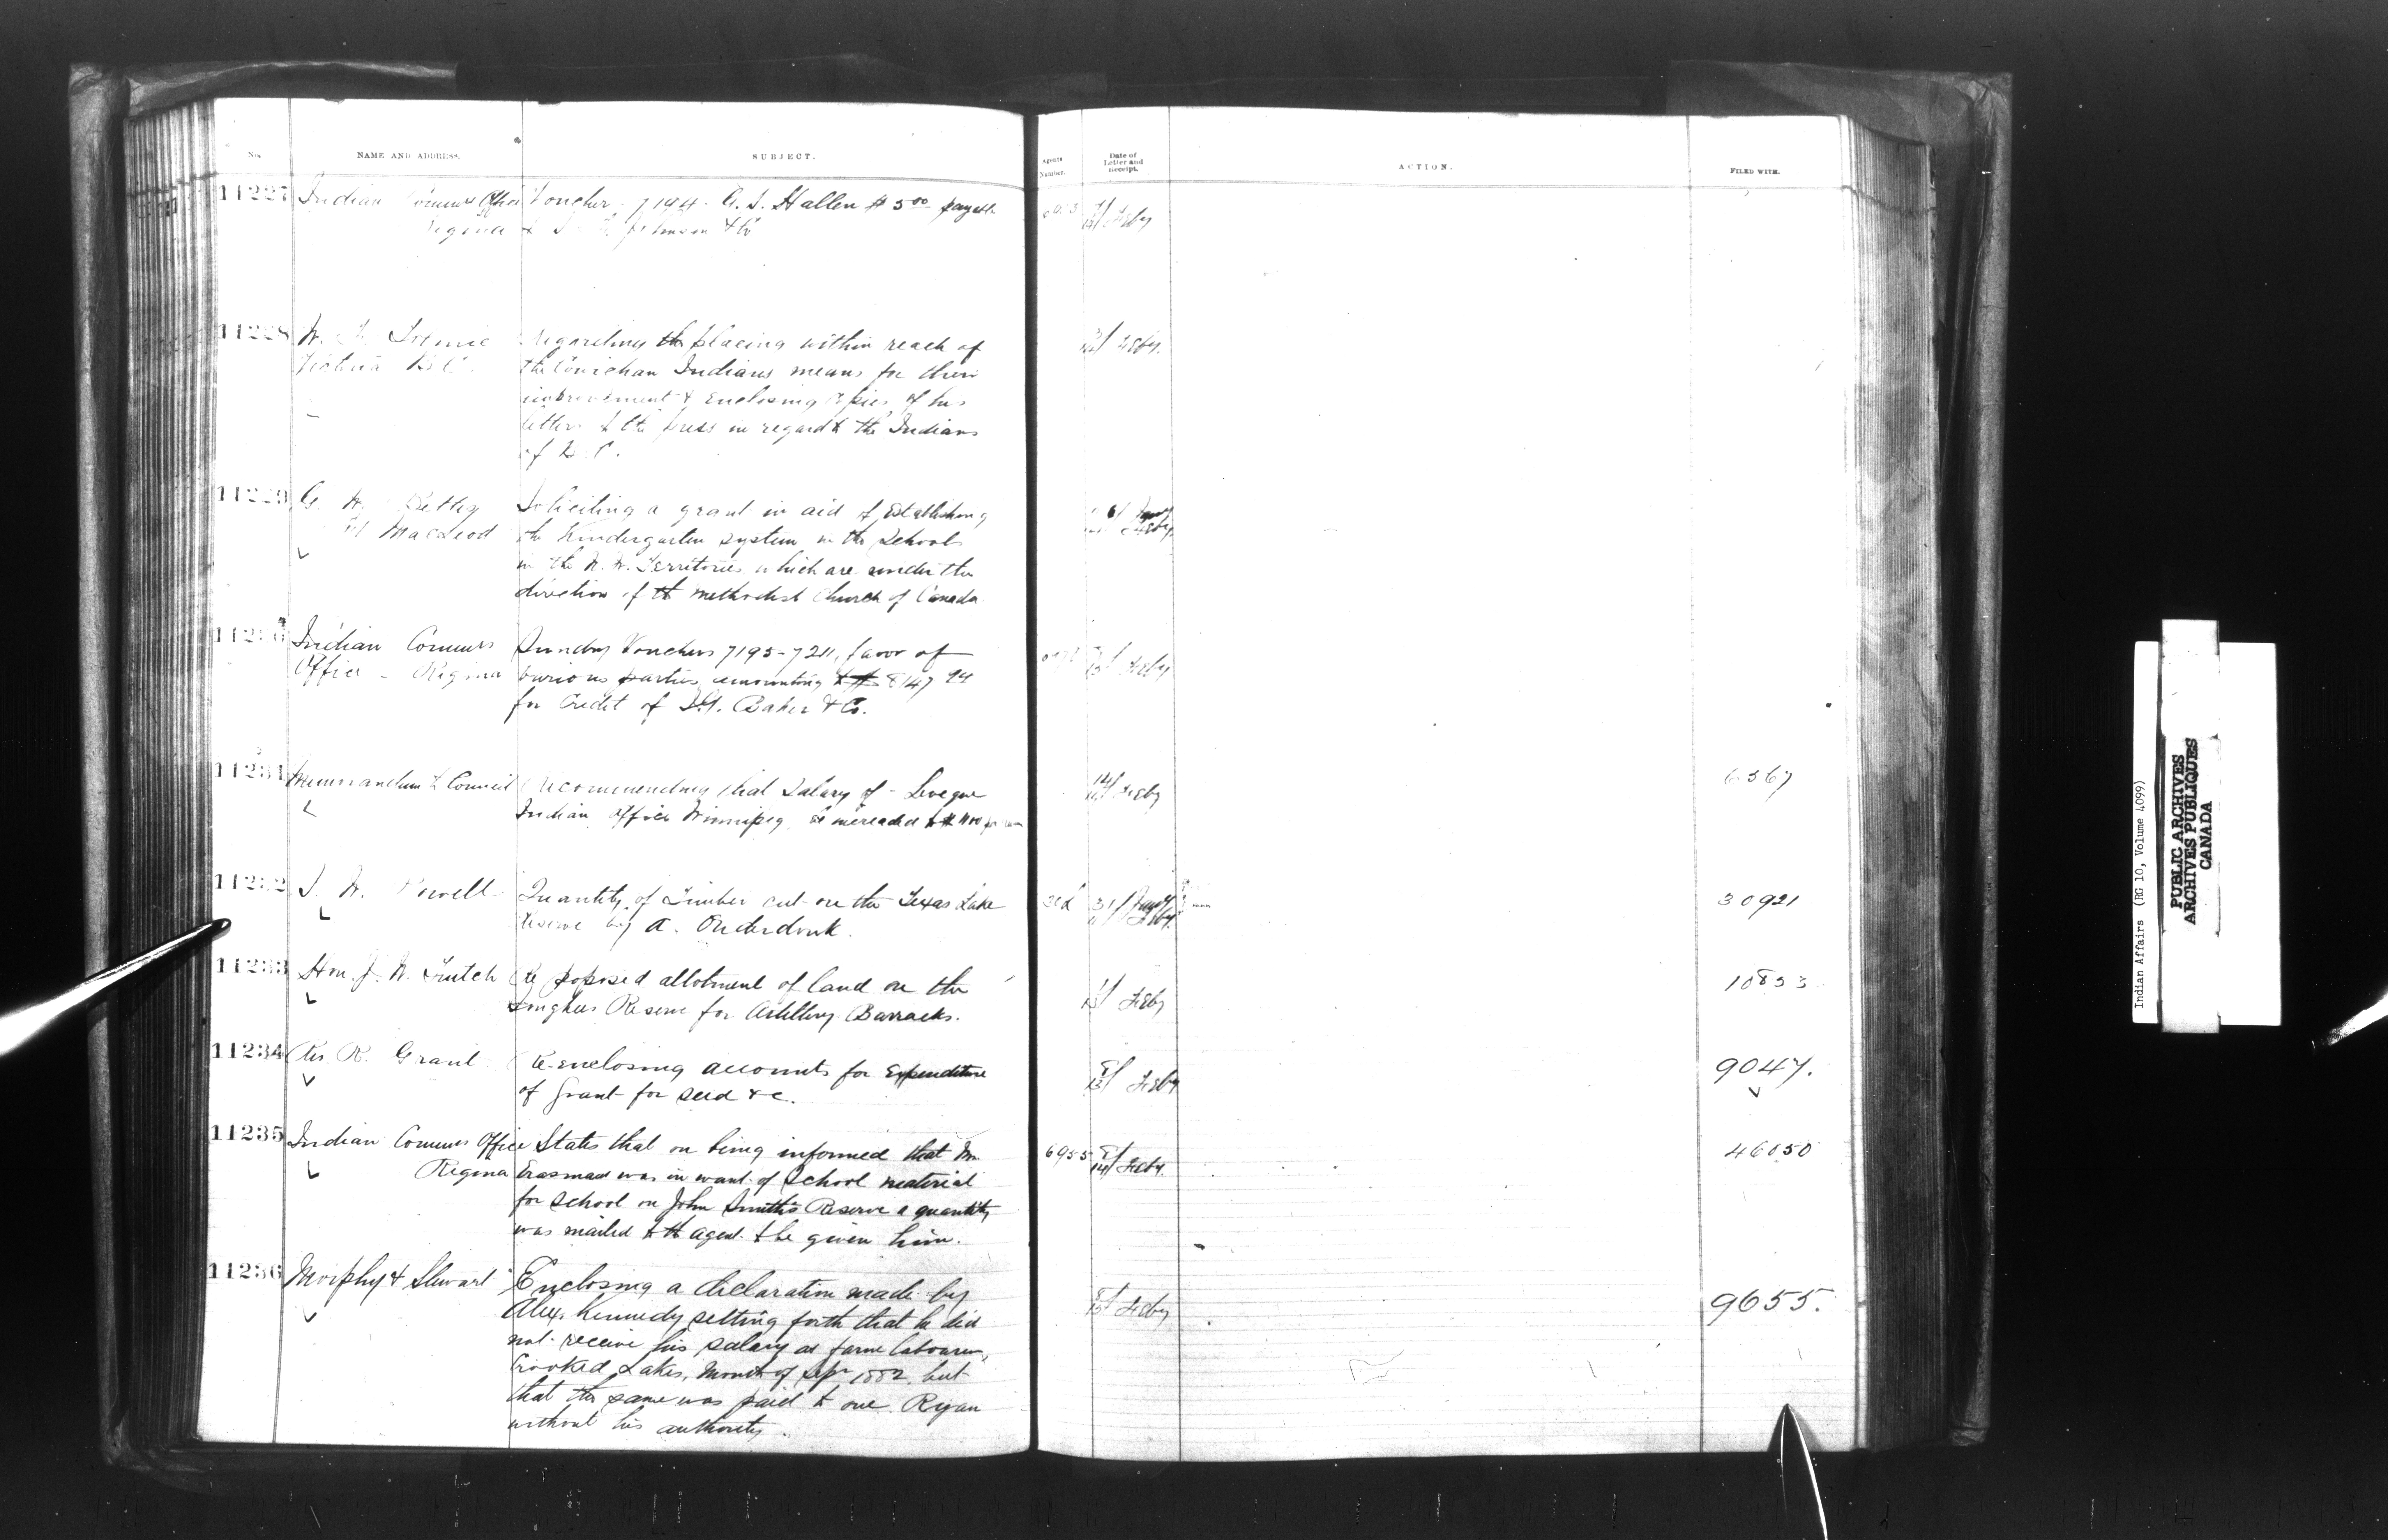 No.
NAME AND ADDRESS.
SUBJECT.
Agents Number.
Date of Letter and Receipt.
ACTION.
FILED WITH.
11227 Indian Commrs Office Voucher 7194 - A. S. Hallen $ 5 00 payable
Regina to Johnson & Co
Feby
11228
Victoria B.C.
regarding the placing within reach of
the Cowichan Indians means for their
improvement & enclosing copies of his
letters to the press in regard to the Indians
of B.C.
Feby.
11229 G. W.
Ft MacLeod
Soliciting a grant in aid of establishing
the Kindergarten system in the Schools
in the N. W. Territories which are under the
direction of the Methodist Church of Canada
6/ Jany
Feby
11230 Indian Commrs
Office - Regina
Sundry Vouchers 7195-7211, favor of
various parties amounting to $ 8147 94
for Credit of I.G. Baker & Co.
13/ Feby
11231 Memorandum to Council Recommending that Salary of - Leveque
Indian Office Winnipeg be increased to $ 1100 per
14/ Feby
6367
11232 I. W. Powell Quantity of Timber cut on the Texas Lake
Reserve by A. Onderdonk.
31/ Jany
Feby.
30921
11233 Hon. J. W. Trutch Re proposed allotment of land on the
Songhees Reserve for Artillery Barracks.
Feby
10833
11234 Rev. R. Grant Re-enclosing accounts for Expenditure
of Grant for seed &c.
8/
13/ Feby
9047.
11235 Indian Commrs Office States that on being informed that Mr.
Regina Erasmus was in want of School material
for school on John Smith's Reserve a quantity
was mailed to the agent to be given him.
6955 8/
14/ Feby.
46050
11236 Morphy & Stewart Enclosing a declaration made by
Alex. Kennedy setting forth that he did
not receive his salary as farm labourer,
Crooked Lakes, Month of Sepr 1882, but
that the same was paid to one Ryan
without his authority.
8/
13/ Feby
9655.
Indian Affairs (RG 10, Volume 4099)
PUBLIC ARCHIVES
ARCHIVES PUBLIQUES
CANADA